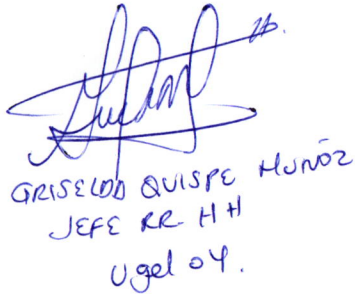 GRISELDO QUISPE MUÑOZ
JEFE RR-HH
Ugel 04.